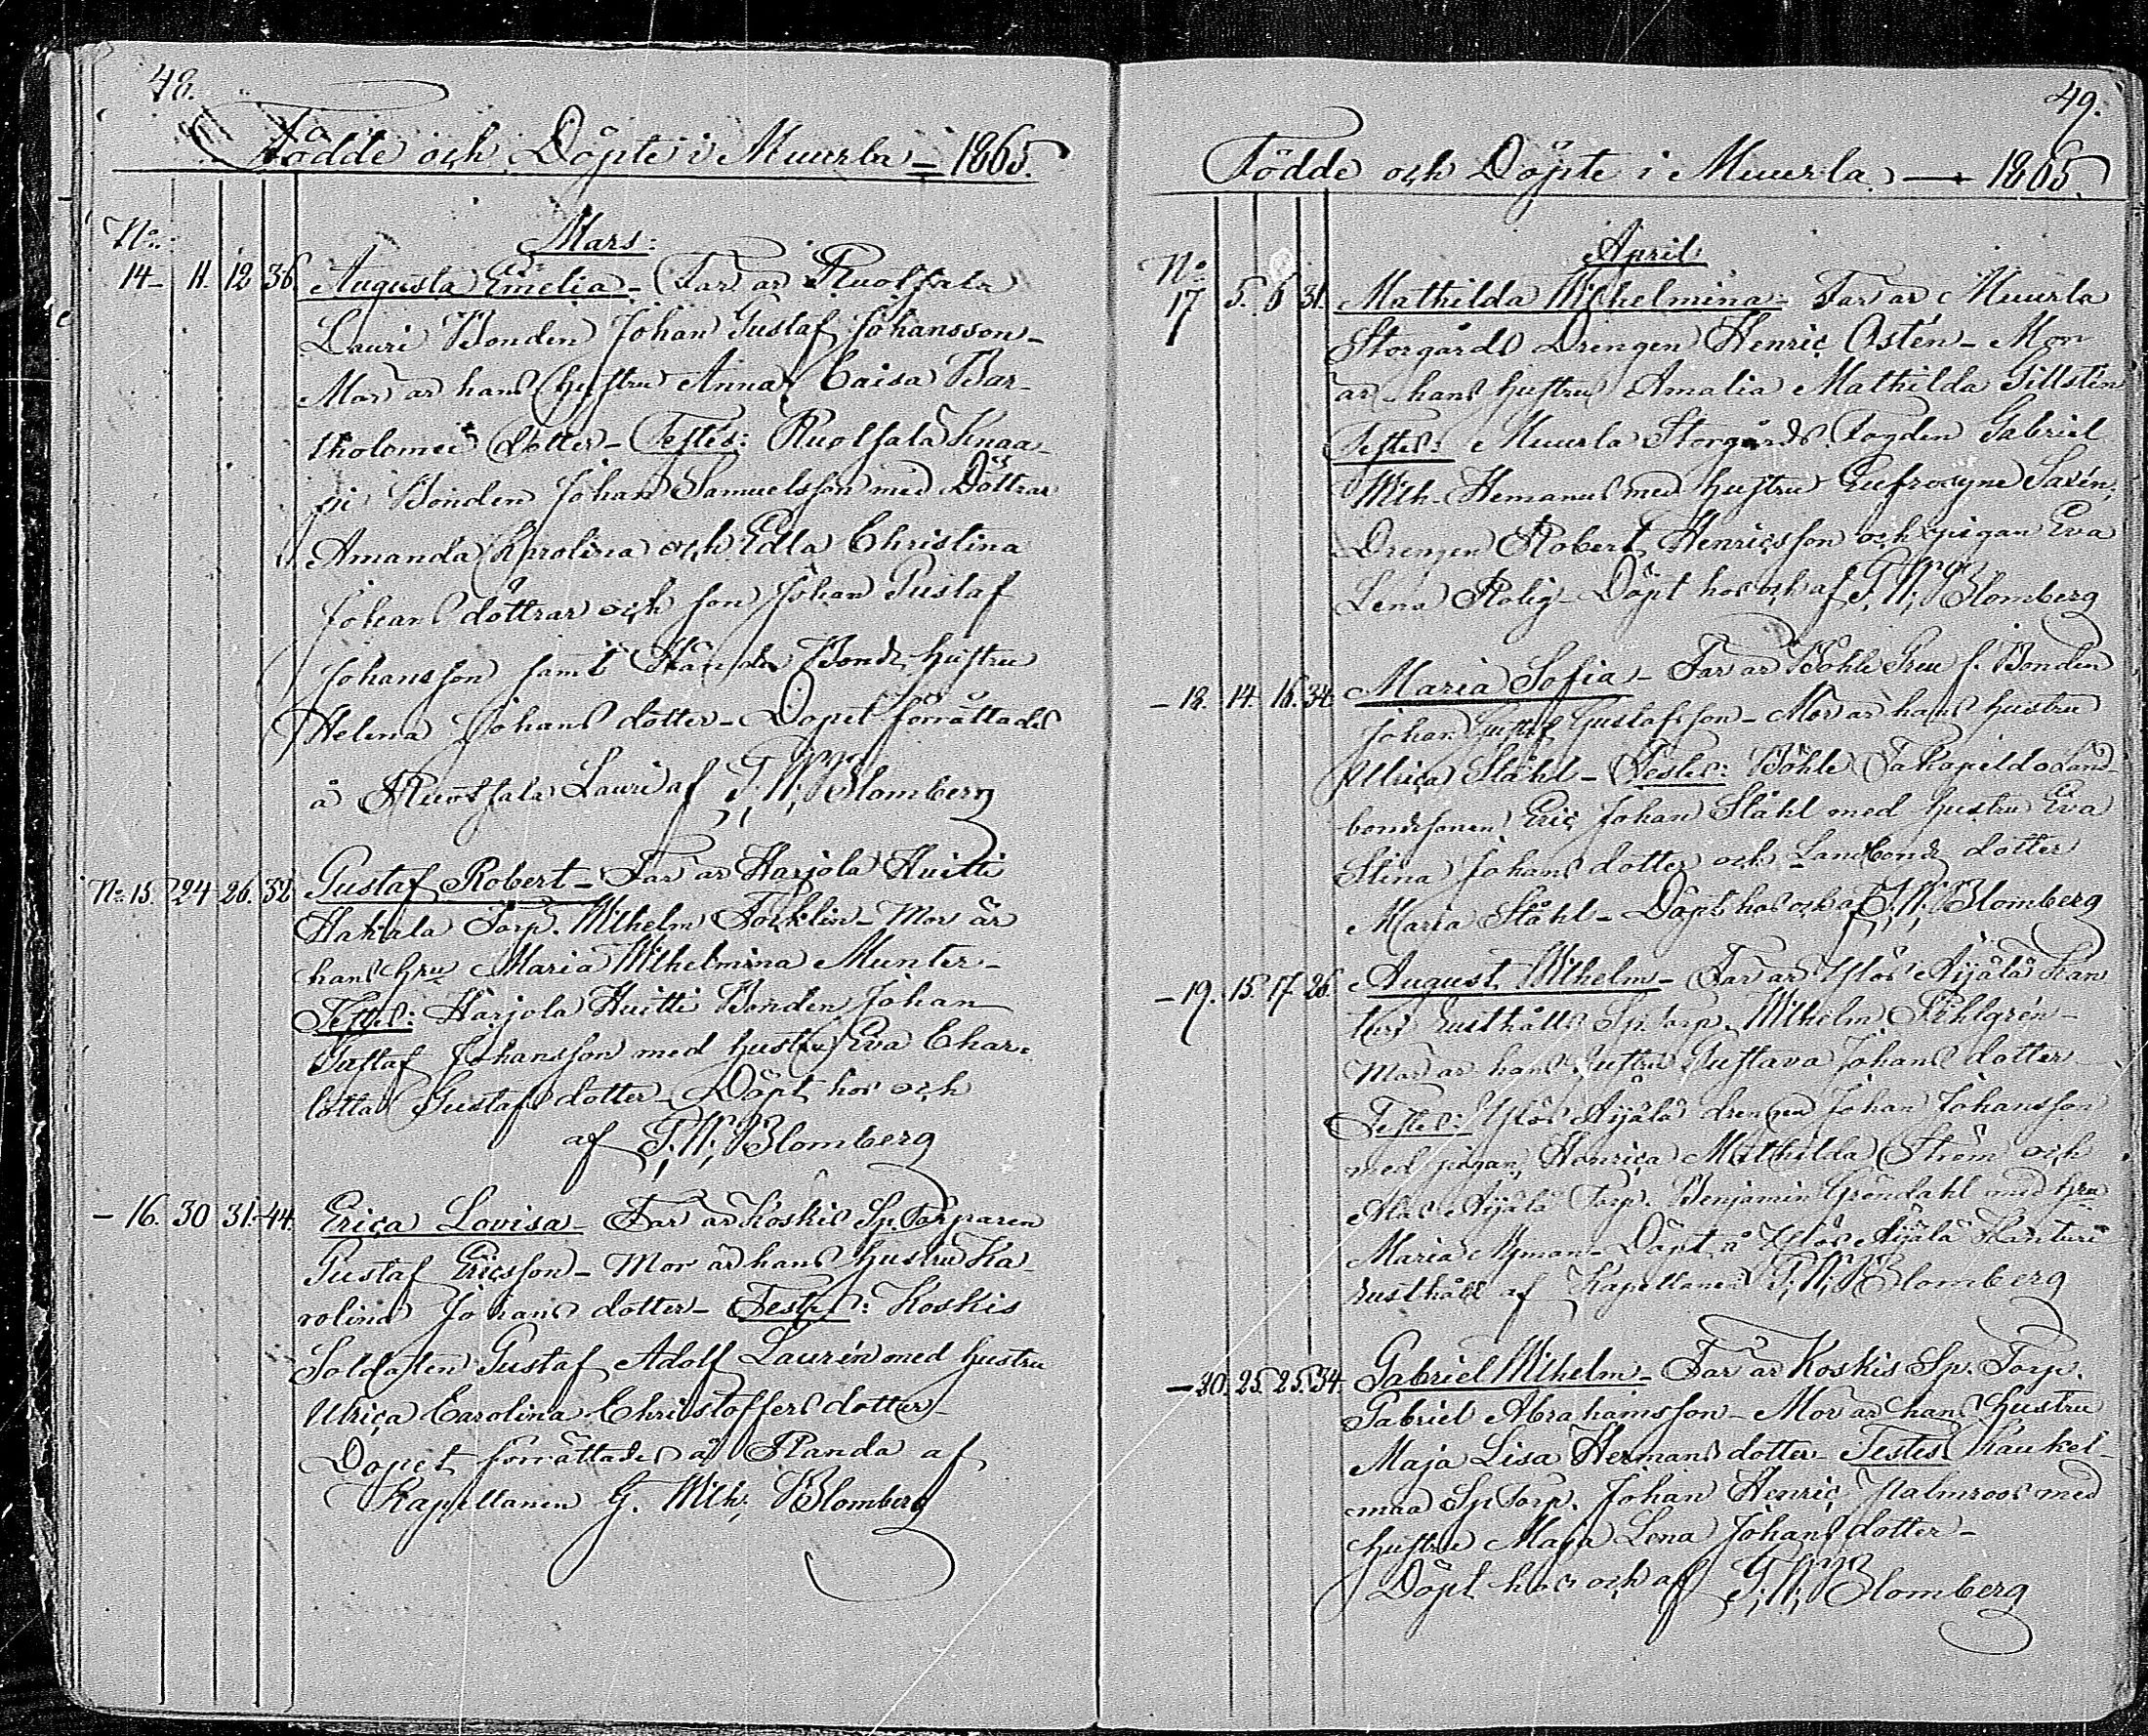 48.
Födde och Döpte i Muurla – 1865.
No.
Mars:
14 – 11. 12 36. Augusta Emelia – Far är Ruotsala
Lauri Bonden Johan Gustaf Johansson –
Mor är hans hustru Anna Caisa Bar-
tholomei dotter – Testes: Ruotsala Knaa-
pi Bonden Johan Samuelsson med Döttrar
Amanda Karolina och Edla Christina
Johans döttrar och son Johan Gustaf
Johansson samt Bonde hustru
Helena Johans dotter – Dopet förrättades
å Ruotsala Lauri af G. W. Blomberg
No. 15. 24 26. 32 Gustaf Robert – Far är Harjola Huitti
Hakala Torp. Wilhelm Focklin – Mor är
hans hru Maria Wilhelmina Munter –
Testes: Harjola Huitti Bonden Johan
Gustaf Johansson med hustru Eva Char-
lotta Gustafs dotter – Döpt hos och
af G. W. Blomberg
– 16. 30 31. 44. Erica Lovisa – Far är Koskis Sp. Torparen
Gustaf Ericsson – Mor är hans hustru Ka-
rolina Johans dotter – Testes: Koskis
Soldaten Gustaf Adolf Laurén med hustru
Ulrica Carolina Christoffers dotter –
Dopet förrättades å Randa af
Kapellanen G. Wilh. Blomberg
49.
Födde och Döpte i Muurla. – 1865.
April:
No. 17 5. 6 31. Mathilda Wilhelmina – Far är Muurla
Storgårds Drengen Henric Östén – Mor
är hans hustru Amalia Mathilda Gillstén
Testes: Muurla Storgårds Fogden Gabriel
Wilh. Hemanus med hustru Eufrosyne Saxén,
Drengen Robert Henricsson och pigan Eva
Lena Rolig – Döpt hos och af G. W. Blomberg
– 18. 14. 16. 34. Maria Sofia – Far är Böhle Greu f. Bonden
Johan Gustaf Gustafsson – Mor är hans hustru
Ulrica Ståhl – Testes: Böhle Takapeldo Land-
bondesonen Eric Johan Ståhl med hustru Eva
Stina Johans dotter och Landbonde dotter
Maria Ståhl – Döpt hos och af G. W. Blomberg
– 19. 15. 17. 26. August Wilhelm – Far är Ylös Äijälä Kan
turi Rusthålls Sp. torp. Wilhelm Pihlgrén –
Mor är hans hustru Gustava Johans dotter
Testes: Ylös Äijälä drengen Johan Johansson
med pigan Henrica Mathilda Ström och
Alas Äijälä Torp. Benjamin Gröndahl med hru
Maria Nyman – Döpt å Ylös Äijälä Kanturi
Rusthåll af Kapellanen G. W. Blomberg
– 20. 25. 25. 34. Gabriel Wilhelm – Far är Koskis Sp. Torp.
Gabriel Abrahamsson – Mor är hans hustru
Maja Lisa Hermans dotter – Testes Kaukel-
maa Sp. torp. Johan Henric Palmroos med
hustru Maja Lena Johans dotter –
Döpt hos och af G. W. Blomberg